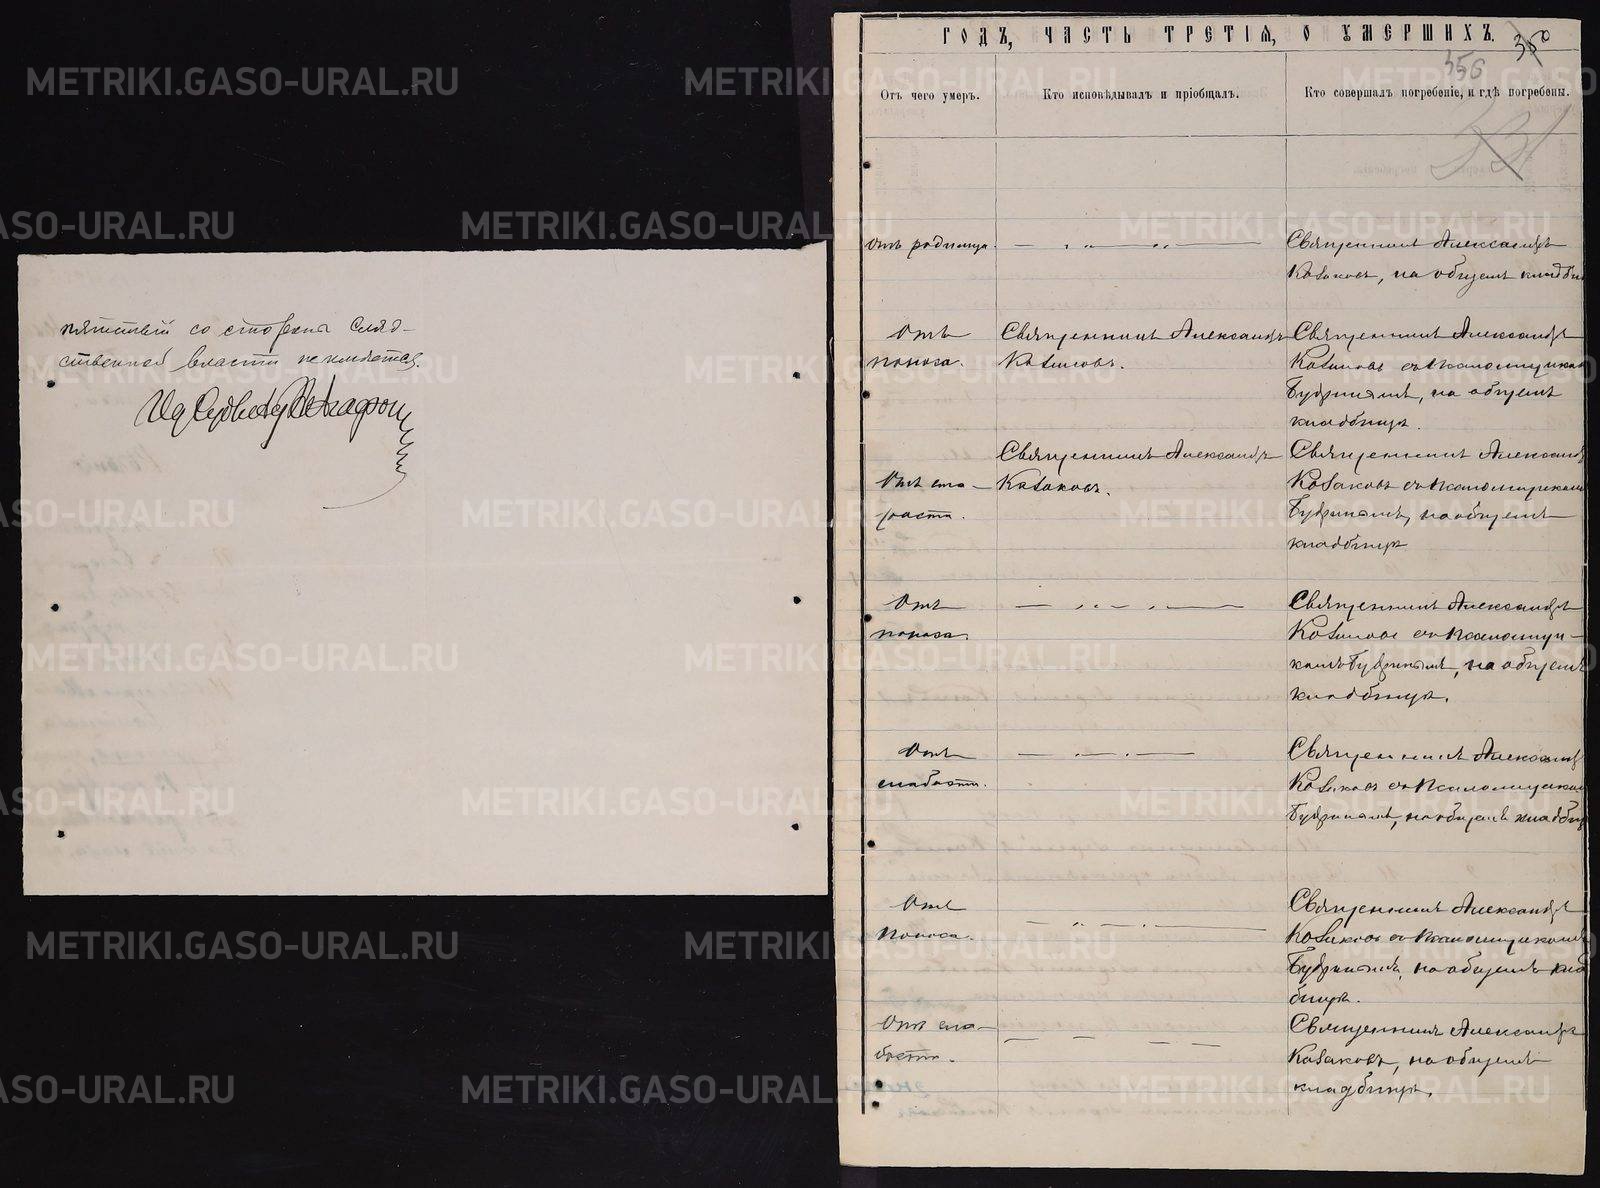 пятствій со стороны Слѣд-
ственной власти не имѣется.
ГОДЪ, ЧАСТЬ ТРЕТІЯ, О УМЕРШИХЪ.
350
356
Отъ чего умеръ.
Кто исповѣдывалъ и пріобщалъ.
Кто совершалъ погребеніе, и гдѣ погребены.
Отъ родимца.
Священникъ Александръ
Казаковъ, на общемъ кладби
Отъ
поноса.
Священникъ Александръ
Казаковъ.
Священникъ Александръ
Казаковъ съ псаломщиком
на общемъ
кладбищѣ.
Отъ ста-
рости.
Священникъ Александръ
Казаковъ.
Священникъ Александръ
Казаковъ съ псаломщиком
на общемъ
кладбищѣ
Отъ
поноса.
Священникъ Александръ
Казаковъ съ псаломщи-
комъ на общемъ
кладбищѣ.
Отъ
слабости.
Священникъ Александръ
Казаковъ съ псаломщиком
на общемъ кладбищ
Отъ
поноса.
Священникъ Александръ
Казаковъ съ псаломщикомъ
на общемъ кла
бищѣ.
Отъ сла-
бости.
Священникъ Александръ
Казаковъ, на общемъ
кладбищѣ.
METRIKI.GASO-URAL.RU